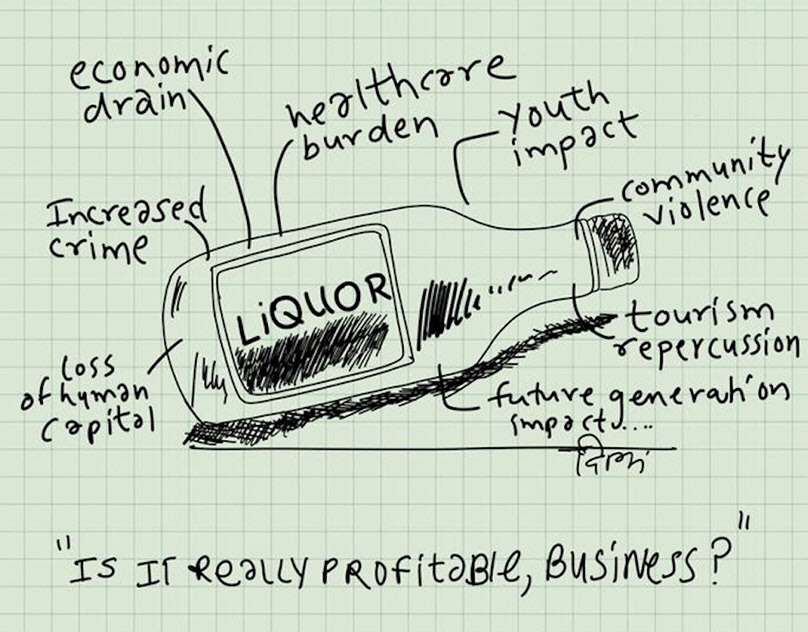 economic
drain
healthcare
burden
youth
impact
community
violence
Increased
crime
LiQUOR
loss
of human
capital
tourism
repercussion
future generation
impact....
"Is IT Really PROfitaBle, BUSiNess?"